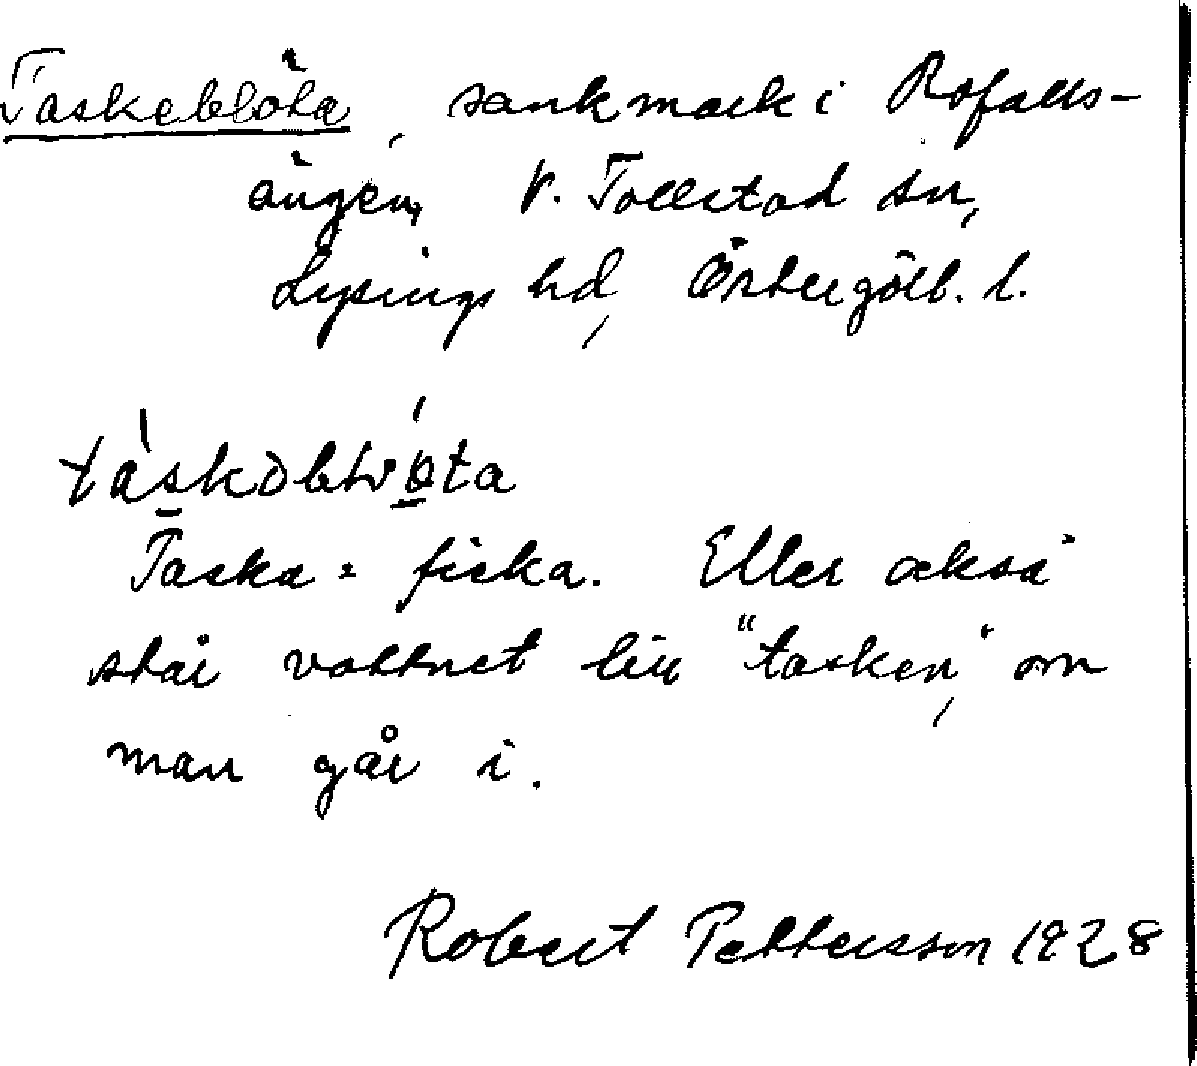 Taskeblöta, sankmark i Rofalls-
ängen, V. Tollstad sn,
Lysings hd, Östergötl. l.
Taska = ficka. Eller också
står vattnet till "tasken", om
man går i.
Robert Pettersson 1928